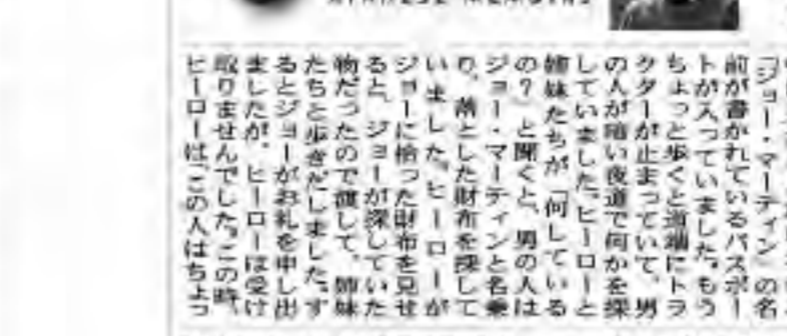 「ジョー・マーティン」の名
前が書かれているパスポー
トが入っていました。もう
ちょっと歩くと道端にトラ
クターが止まっていて、男
の人が暗い夜道で何かを探
していました。ヒーローと
姉妹たちが「何している
の?」と聞くと、男の人は
ジョー・マーティンと名乗
り、落とした財布を探して
いました。ヒーローが
ジョーに拾った財布を見せ
ると、ジョーが探していた
物だったので渡して、姉妹
たちと歩きだしました。す
るとジョーがお礼を申し出
ましたが、ヒーローは受け
取りませんでした。この時、
ヒーローは「この人はちょっ